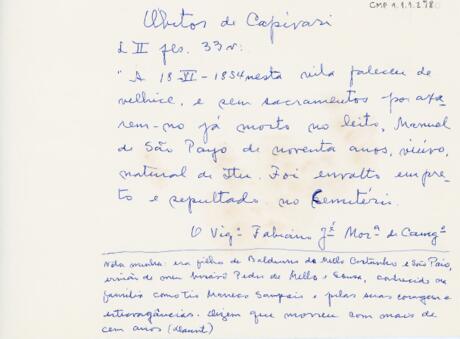 CMP 1.1.1.298
Obitos de Capivari
L II fls. 33v:
"A 18-VI-1854 nesta vila faleceu de
velhice, e sem sacramentos por axa-
rem-no já morto no leito, Manuel
de São Payo de noventa anos, viúvo,
natural de Itu. Foi envolto em pre-
to e sepultado no Cemitério.
O Vigº Fabiano Jé Morª de Camgº
Nota minha: era filho de Balduino de Mello Castanho e São Paio,
irmão de meu bisavô Pedro de Mello e Souza, conhecido na
família como Tio Maneco Sampaio e pelas suas coragem e
extravagâncias. Dizem que morreu com mais de
cem anos (Daunt)